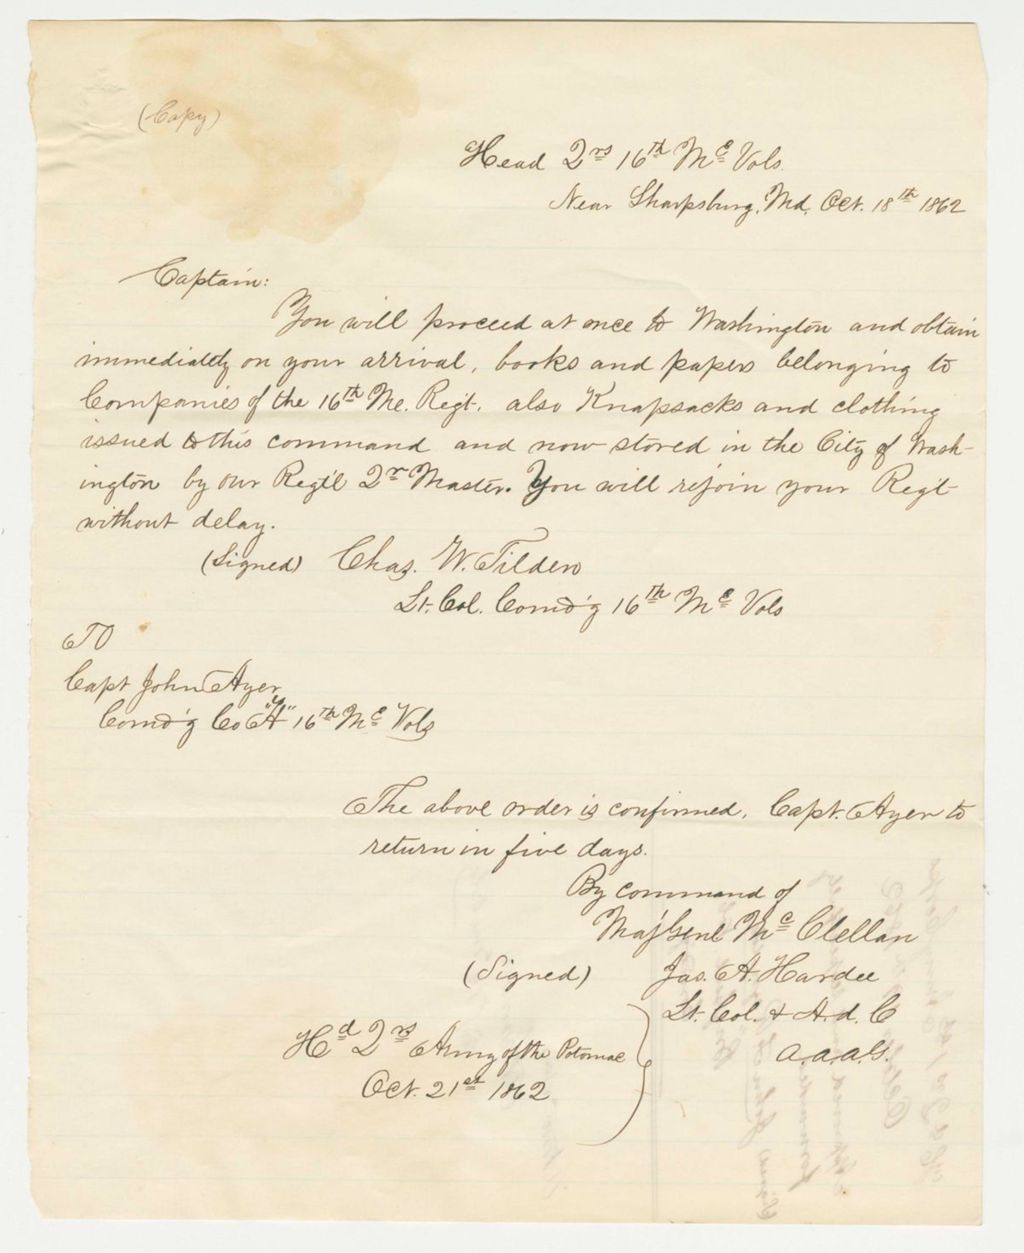 (Copy)
Head Qrs 16th Me Vols.
Near Sharpsburg, Md. Oct. 18th 1862
Captain:
You will proceed at once to Washington and obtain
immediately on your arrival, books and papers belonging to
Companies of the 16th Me. Regt. also Knapsacks and clothing
issued to this command and now stored in the City of Wash-
ington by our Regt'l Qr Master. You will rejoin your Regt
without delay.
(Signed) Chas. W. Tilden
Lt. Col. Comd'g 16th Me Vols
To
Capt John Ayer
Comd'g Co "H" 16th Me Vols
The above order is confirmed. Capt. Ayer to
return in five days.
By command of
Maj Genl McClellan
(Signed) Jas. A. Hardee
Lt. Col. & A. d. C
a.a.a.G.
Hd Qrs Army of the Potomac
Oct. 21st 1862